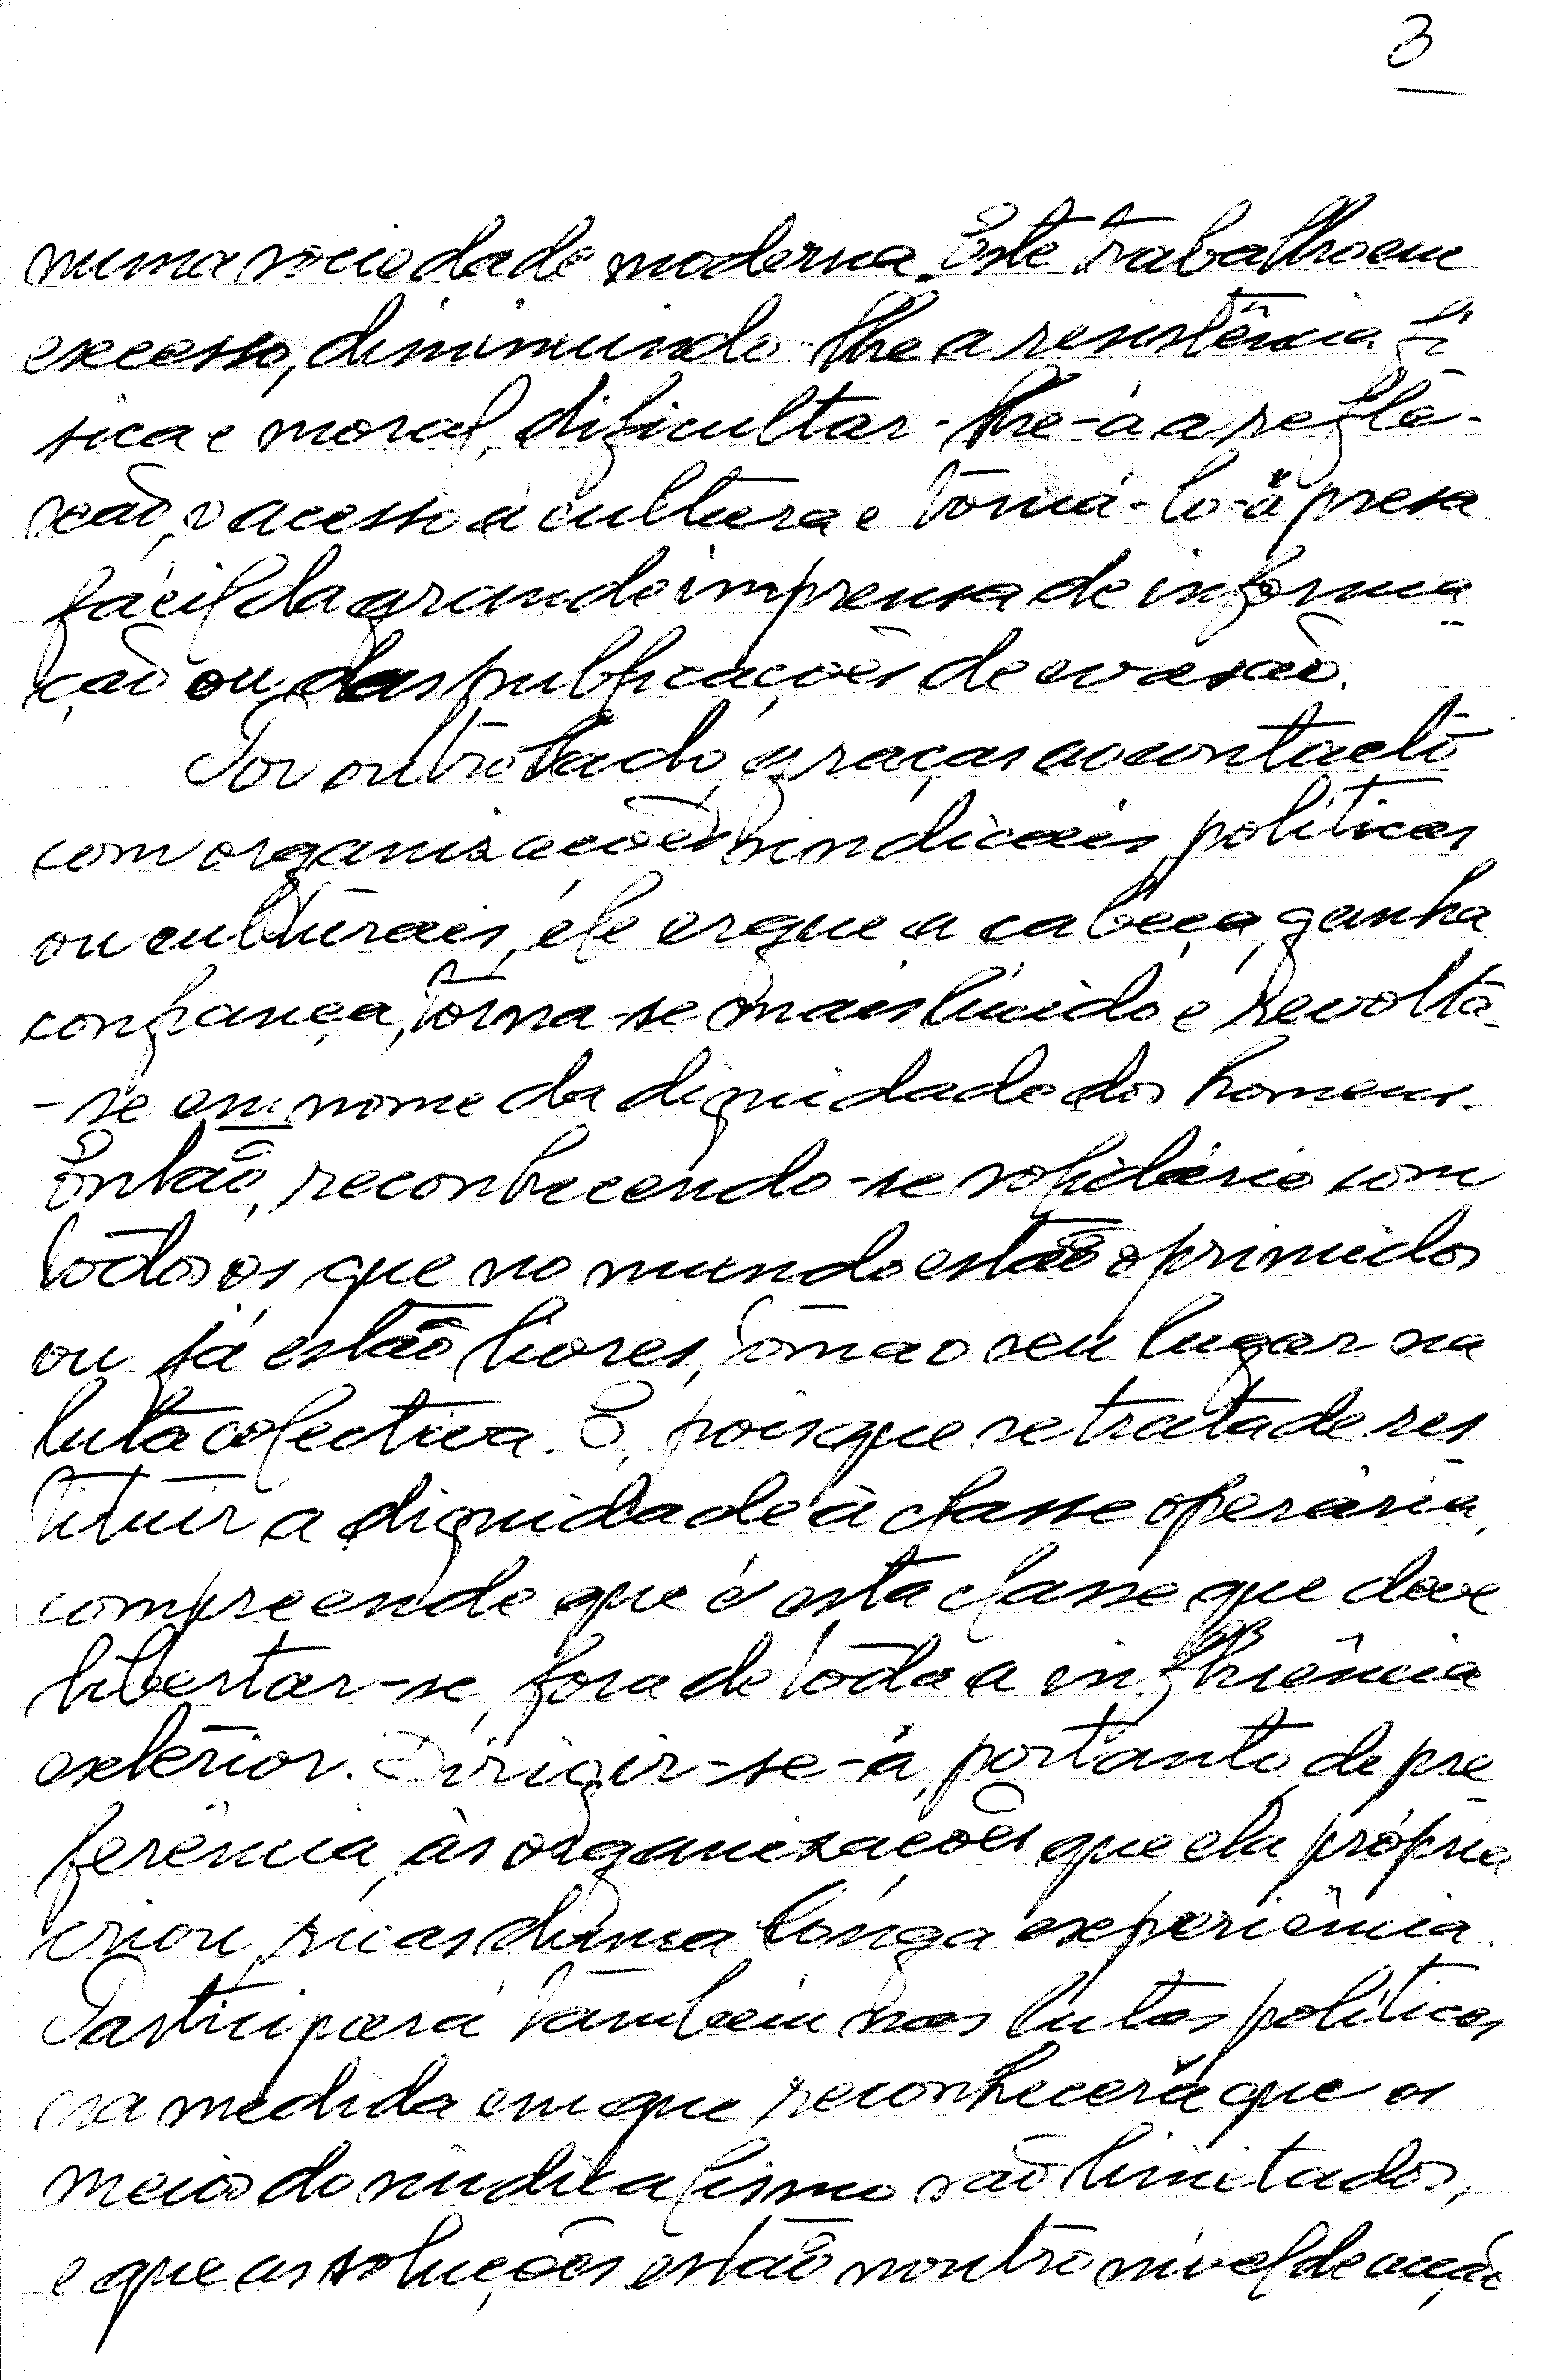 3
numa sociedade moderna. Este trabalho em
excesso, diminuindo-lhe a resistência fí
sica e moral, dificultar-lhe-á a refle-
xão, o acesso à cultura e torná-lo-á presa
fácil da grande imprensa de informa
ção ou das publicações de evasão.
Por outro lado, graças ao contacto
com organizações sindicais, políticas
ou culturais, ele ergue a cabeça, ganha
confiança, torna-se mais lúcido e revolta-
-se em nome da dignidade dos homens.
Então, reconhecendo-se solidário com
todos os que no mundo estão oprimidos
ou já estão livres, toma o seu lugar na
luta colectiva. E, pois que se trata de res
tituir a dignidade à classe operária,
compreende que é esta classe que deve
libertar-se, fora de toda a influência
exterior. Dirigir-se-á, portanto, de pre
ferência, às organizações que ela própria
criou, ricas duma longa experiência.
Participará também nas lutas políticas,
na medida em que reconhecerá que os
meios do sindicalismo são limitados,
e que as soluções estão noutro nível de acção